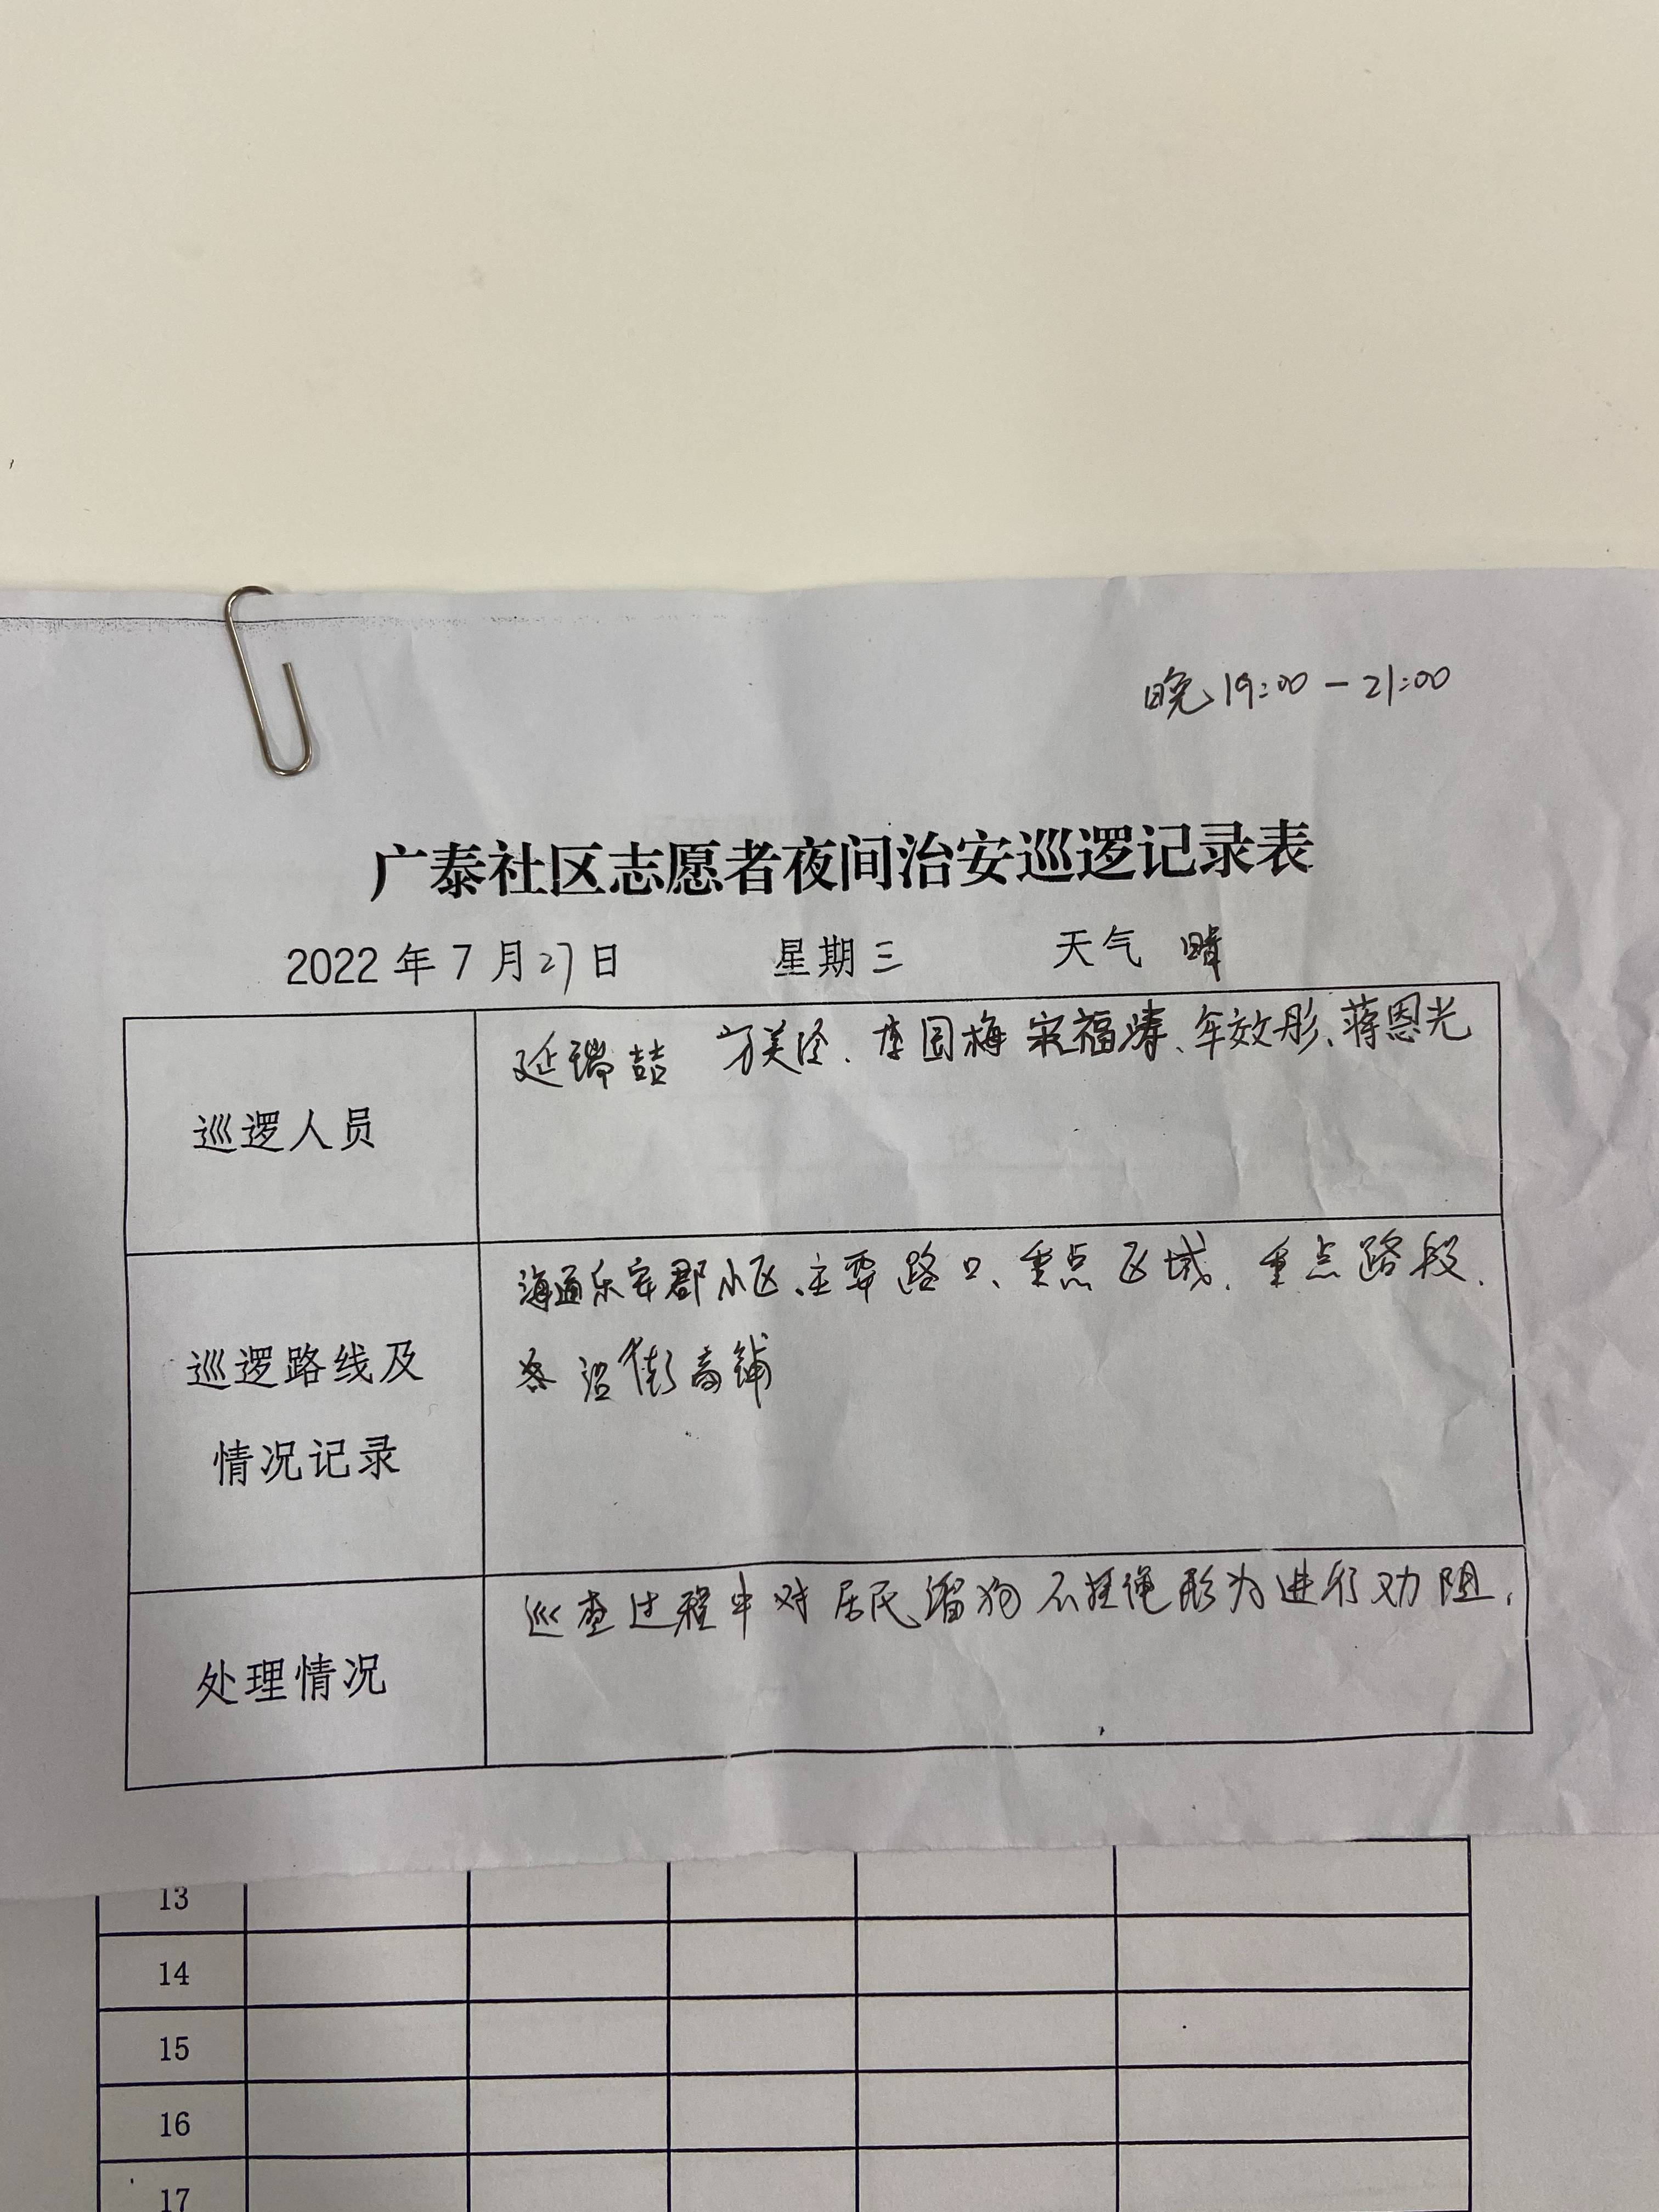 晚19:00-21:00
广泰社区志愿者夜间治安巡逻记录表
2022年7月27日 星期三 天气 晴
巡逻人员
延瑞喆 方美泠、李国梅 宋福涛、牟效彤、蒋恩光
巡逻路线及
情况记录
海通乐安郡小区、主要路口、重点区域、重点路段、
各沿街商铺
处理情况
巡查过程中对居民遛狗不拴绳形为进行劝阻。
13
14
15
16
17